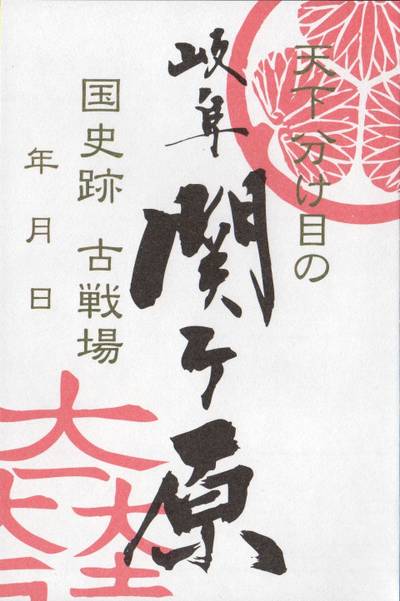 天下分け目の
岐阜 関ケ原
国史跡 古戦場
年 月 日
大一大万大吉